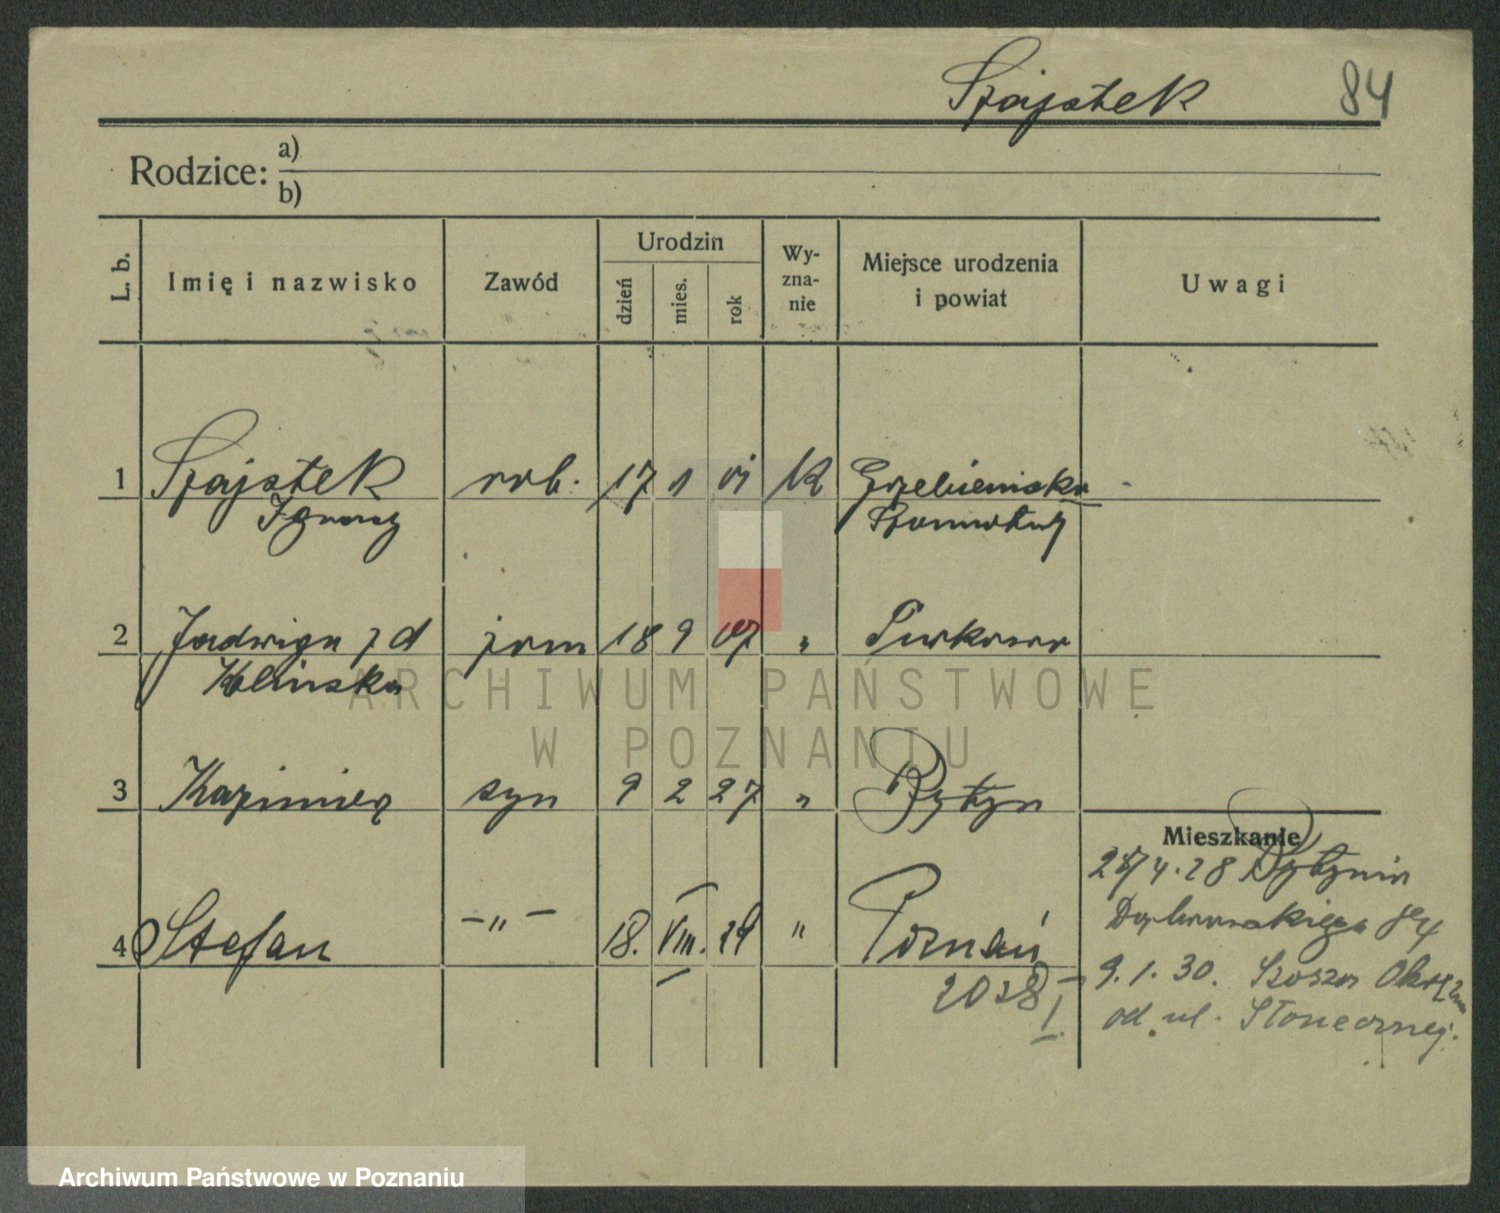 Szajstek 84
Rodzice: a)
b)
L. b. Imię i nazwisko Zawód Urodzin dzień mies. rok Wy-zna-nie Miejsce urodzenia i powiat Uwagi
1 Szajstek rob. 17 1 01 K Grzebienisko
Ignacy Szamotuły
2 Jadwiga z d żona 18 9 07 " Turkowo
Kolińska
3 Kazimierz syn 9 2 27 " Bytyn
Mieszkanie
4.28 Bytynia
4 Stefan -"- 18. VIII. 29 " Poznań
Dąbrowskiego 84
9.1.30. Szosa Okrężna
2028 I
od ul. Słonecznej.
ARCHIWUM PAŃSTWOWE
W POZNANIU
Archiwum Państwowe w Poznaniu